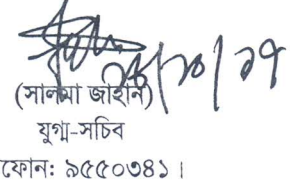 (সালমা জাহান)
যুগ্ম-সচিব
ফোন: ৯৫৫০৩৪১।